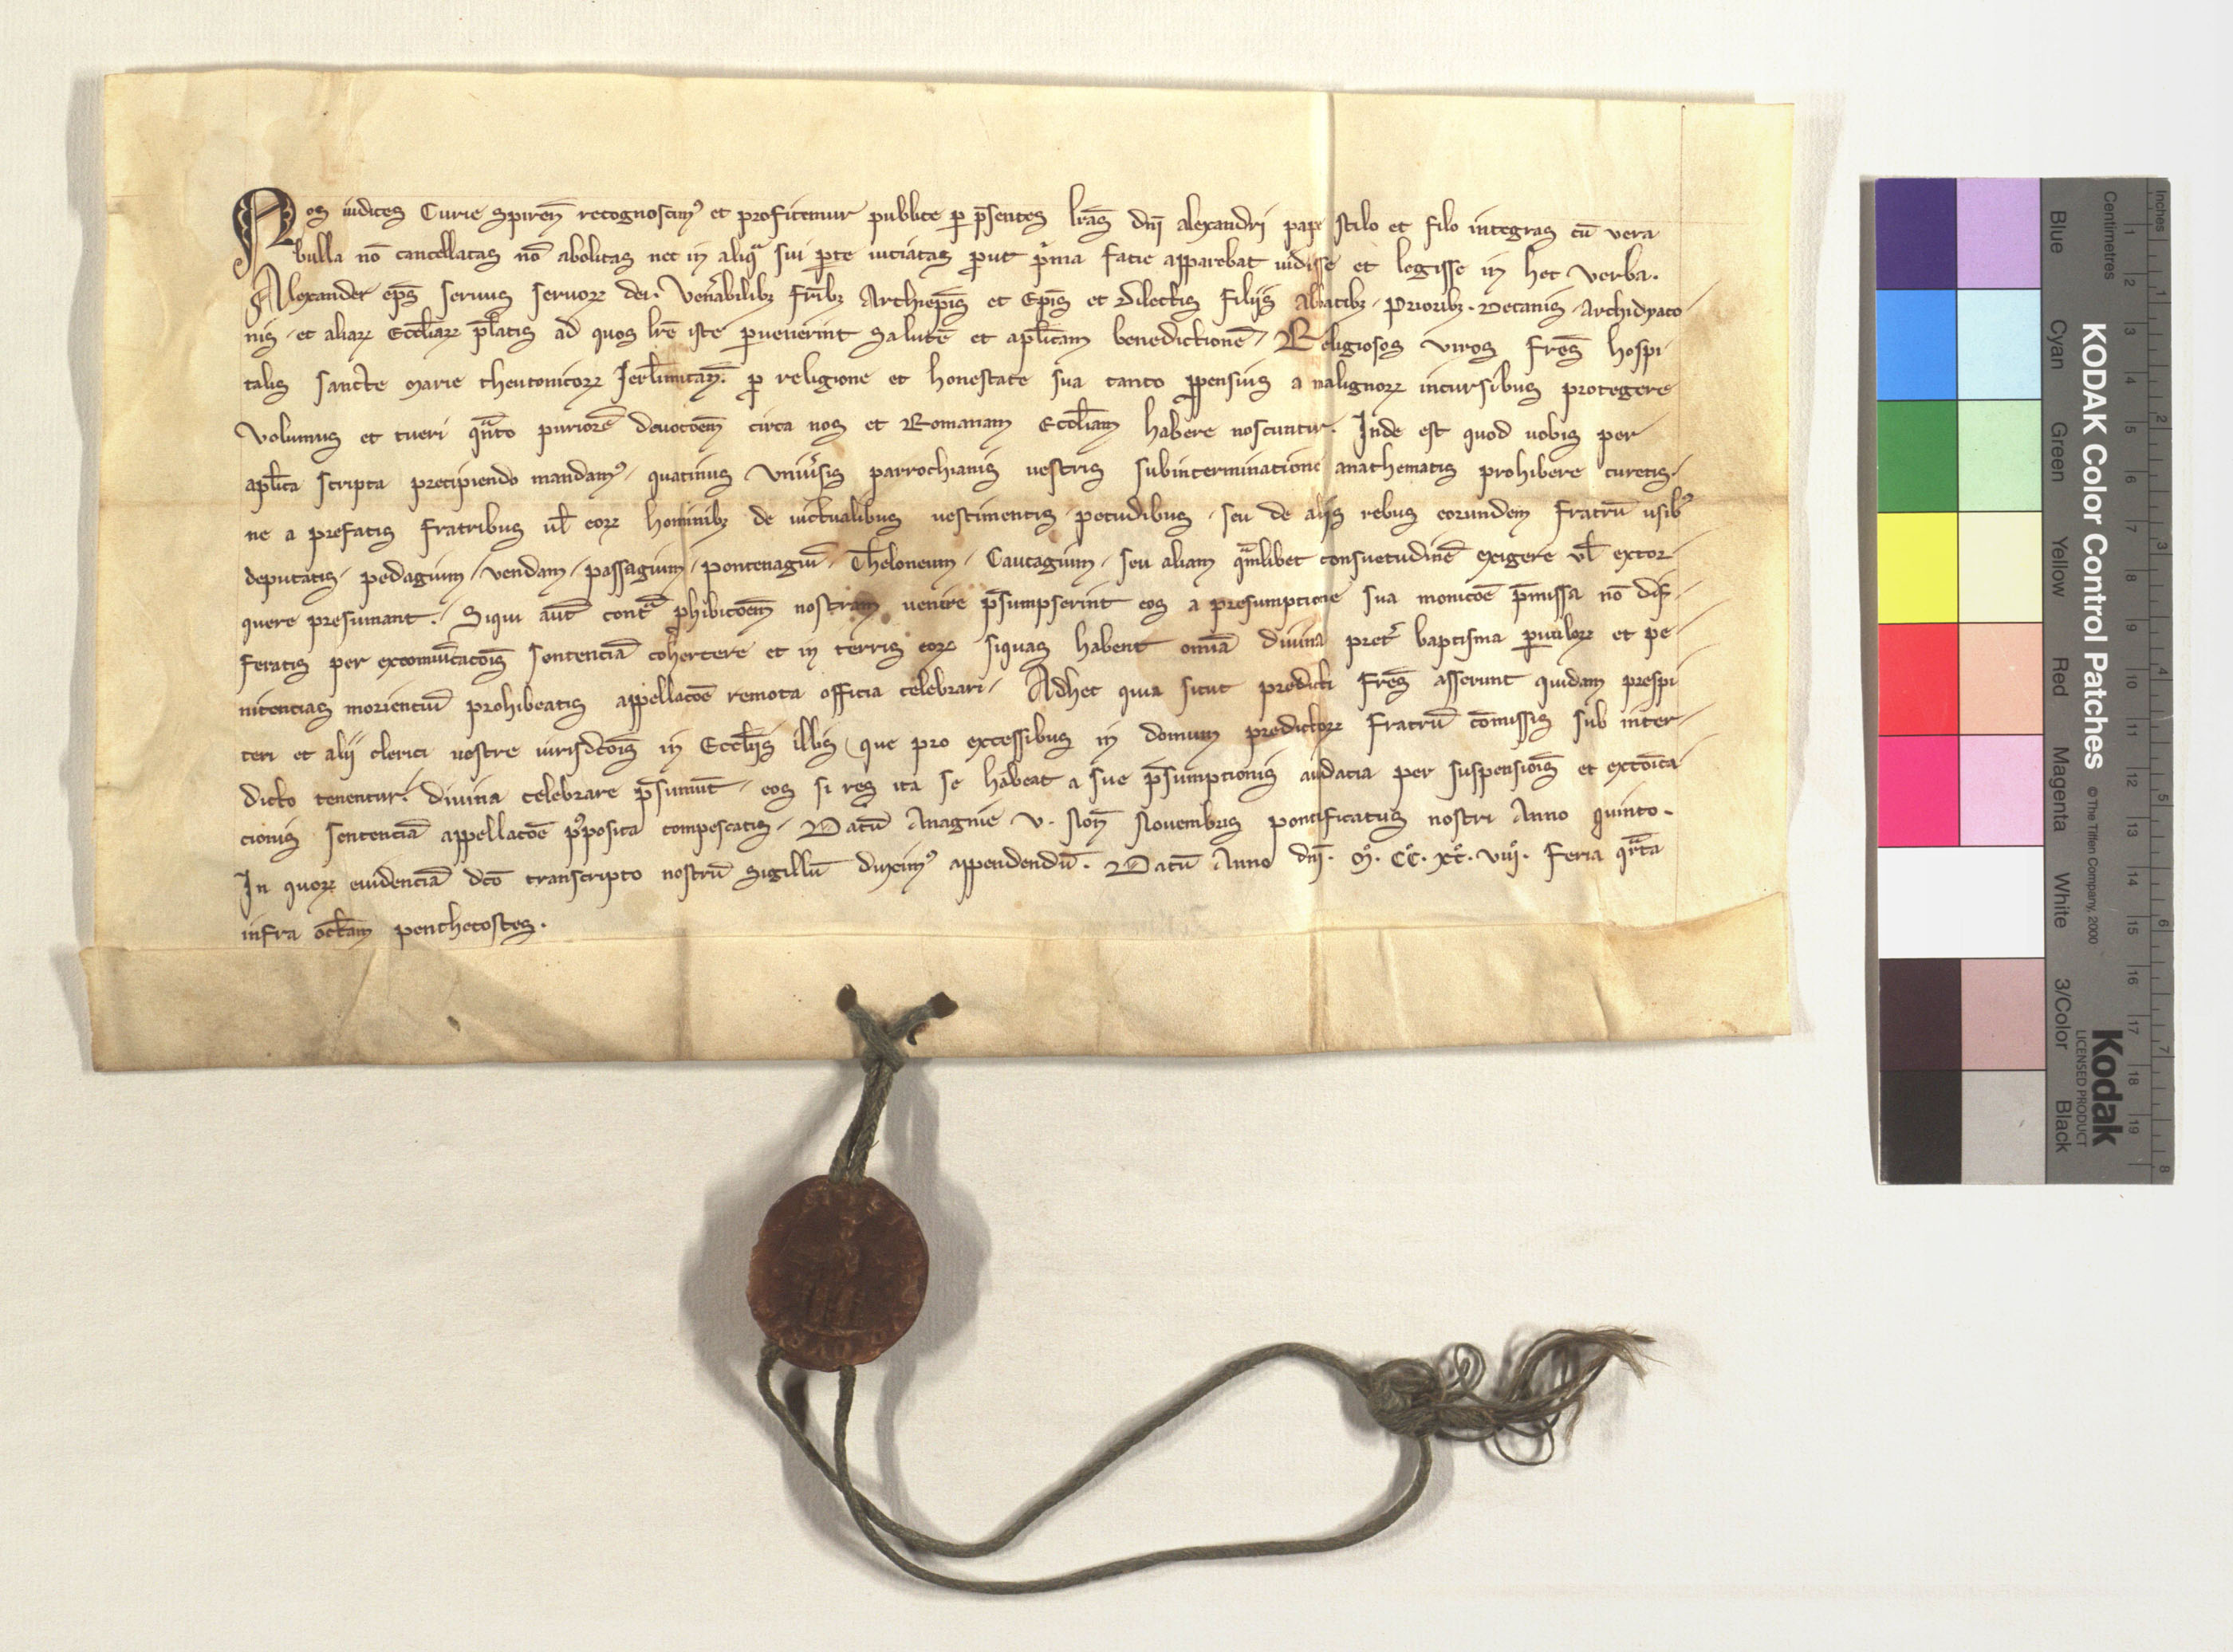 Nos iudices Curie Spireñ recognoscim⁹ et profitemur publice p̲ p̄sentes lr̄as dn̄i Alexandri pape stilo et filo integras cū vera
bulla nō cancellatas nō abolitas nec in aliqᵃ sui p̲te uiciatas p̲ut pⁱma facie apparebat uidisse et legisse in hec verba.
Alexander ep̄s seruus seruoꝝ dei. Ven̄abilibꝫ fr̄ibꝫ Archiep̄is et Ep̄is et dilectis filijs Abbatibꝫ. Prioribꝫ. Decanis. Archidyaco
nis. et aliaꝝ Eccl̄iaꝝ p̄latis ad quos lr̄e iste p̲uenerint Salutē et apl̄icam benedictionē. Religiosos viros fr̄es hospi
talis sancte Marie theutonicoꝝ Jerl̄imitañ. p̲ religione et honestate sua tanto p̲pensius a malignoꝝ incursibus protegere
volumus et tueri qᵃnto puriorē deuoc̄oem circa nos et Romanam Eccl̄iam habere noscuntur. Inde est quod uobis per
apl̄ica scripta precipiendo mandam⁹. quatinus vniu̓sis parrochianis uestris subinterminatione anathematis prohibere curetis.
ne a prefatis fratribus ul̄ eoꝝ hominibꝫ de uictualibus uestimentis. pecudibus. seu de alijs rebus eorundem fratrū usibꝰ
deputatis. pedagium. vendam. passagium. pontenagiū. Theloneum. Cautagium. seu aliam qᵃmlibet consuetudinē exigere ul̄ extor
quere presumant. Siqui aut̄ contᵃ p̲hibic̄oem nostram uenire p̄sumpserint eos a presumptione sua monic̄oe p̄missa nō dif
feratis per excomūicac̄ois sentenciā cohercere et in terris eoꝝ siquas habent om̄ia diuina pret̓ baptisma p̲uuloꝝ et pe
nitencias morienciū prohibeatis appellac̄oe remota officia celebrari. Adhec quia sicut predicti fr̄es asserunt quidam prespi
teri et alij clerici uestre iurisdc̄ois in Eccl̄ijs illis que pro excessibus in domum predictoꝝ fratrū cōmissis sub inter
dicto tenentur. diuina celebrare p̄sumūt. eos si res ita se habeat a sue p̄sumptionis audacia per suspensiōis et excōica
cionis sentenciā appellac̄oe pᵒposita compescatis. Datū Anagnie v. Noñ Nouembris pontificatus nostri Anno quinto.
In quoꝝ euidenciā dc̄o transcripto nostrū Sigillū duxim⁹ appendendū. Datū Anno dn̄i. Mͦ. CCͦ. XCͦ. viijͦ. feria qᵃrta
infra oct̄am penthecostes.
Inches
Centimetres
1 2 3 4 5 6 7 8 9 10 11 12 13 14 15 16 17 18 19
1 2 3 4 5 6 7 8
Blue Cyan Green Yellow Red Magenta White 3/Color Black
KODAK Color Control Patches
© The Tiffen Company, 2000
Kodak
LICENSED PRODUCT